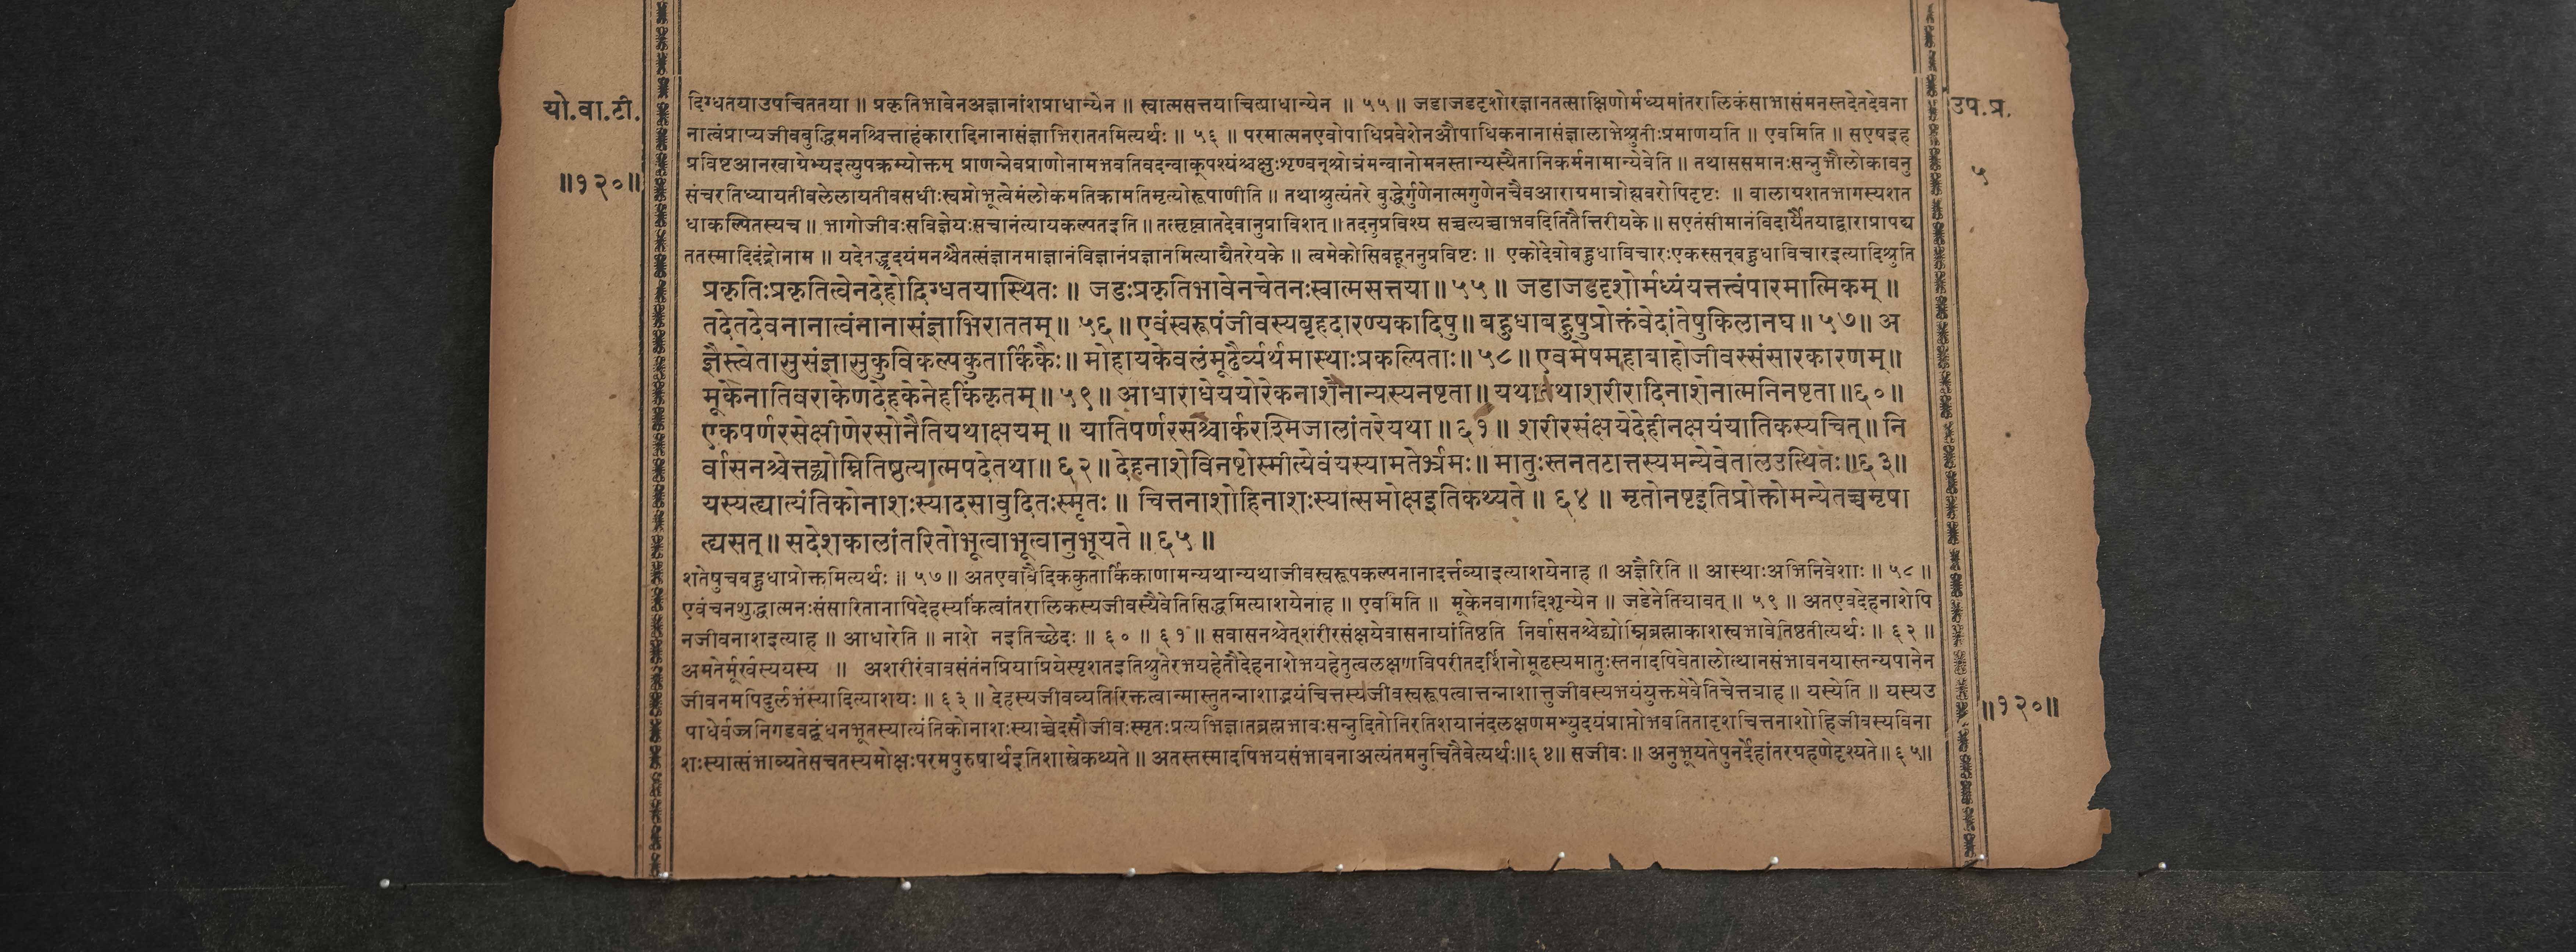 यो.वा.टी.
॥१२०॥
उप.प्र.
५
दिग्धतयाउपचिततया ॥ प्रकृतिभावेनअज्ञानांशप्राधान्येन ॥ स्वात्मसत्तयाचित्प्राधान्येन ॥ ५५ ॥ जडाजडदृशोरज्ञानतत्साक्षिणोर्मध्यमांतरालिकंसाभासंमनस्तदेतदेवना
नात्वंप्राप्यजीवबुद्धिमनश्चित्ताहंकारादिनानासंज्ञाभिराततमित्यर्थः ॥ ५६ ॥ परमात्मनएवोपाधिप्रवेशेनऔपाधिकनानासंज्ञालाभेश्रुतीःप्रमाणयति ॥ एवमिति ॥ सएषइह
प्रविष्टआनखाग्रेभ्यइत्युपक्रम्योक्तम् प्राणन्नेवप्राणोनामभवतिवदन्वाक्पश्यंश्चक्षुःशृण्वन्श्रोत्रंमन्वानोमनस्तान्यस्यैतानिकर्मनामान्येवेति ॥ तथाससमानःसन्नुभौलोकावनु
संचरतिध्यायतीवलेलायतीवसधीःस्वप्नोभूत्वेमंलोकमतिक्रामतिमृत्योरूपाणीति ॥ तथाश्रुत्यंतरे बुद्धेर्गुणेनात्मगुणेनचैवआराग्रमात्रोह्यवरोपिदृष्टः ॥ वालाग्रशतभागस्यशत
धाकल्पितस्यच ॥ भागोजीवःसविज्ञेयःसचानंत्यायकल्पतइति ॥ तत्सृष्ट्वातदेवानुप्राविशत् ॥ तदनुप्रविश्य सच्चत्यच्चाभवदितितैत्तिरीयके ॥ सएतंसीमानंविदार्यैतयाद्वाराप्रापद्य
ततस्मादिदंद्रोनाम ॥ यदेतद्धृदयंमनश्चैतत्संज्ञानमाज्ञानंविज्ञानंप्रज्ञानमित्याद्यैतरेयके ॥ त्वमेकोसिबहूननुप्रविष्टः ॥ एकोदेवोबहुधाविचारःएकस्सन्बहुधाविचारइत्यादिश्रुति
प्रकृतिःप्रकृतित्वेनदेहोदिग्धतयास्थितः ॥ जडःप्रकृतिभावेनचेतनःस्वात्मसत्तया ॥ ५५ ॥ जडाजडदृशोर्मध्यंयत्तत्त्वंपारमात्मिकम् ॥
तदेतदेवनानात्वंनानासंज्ञाभिराततम् ॥ ५६ ॥ एवंस्वरूपंजीवस्यबृहदारण्यकादिषु ॥ बहुधाबहुषुप्रोक्तंवेदांतेषुकिलानघ ॥ ५७ ॥ अ
ज्ञैस्त्वेतासुसंज्ञासुकुविकल्पकुतार्किकैः ॥ मोहायकेवलंमूढैर्व्यर्थमास्थाःप्रकल्पिताः ॥ ५८ ॥ एवमेषमहाबाहोजीवस्संसारकारणम् ॥
मूकेनातिवराकेणदेहकेनेहकिंकृतम् ॥ ५९ ॥ आधाराधेययोरेकनाशेनान्यस्यनष्टता ॥ यथातथाशरीरादिनाशेनात्मनिनष्टता ॥६०॥
एकपर्णरसेक्षीणेरसोनैतियथाक्षयम् ॥ यातिपर्णरसश्चार्करश्मिजालांतरेयथा ॥ ६१ ॥ शरीरसंक्षयेदेहीनक्षयंयातिकस्यचित् ॥ नि
र्वासनश्चेत्तद्व्योम्नितिष्ठत्यात्मपदेतथा ॥ ६२ ॥ देहनाशेविनष्टोस्मीत्येवंयस्यामतेर्भ्रमः ॥ मातुःस्तनतटात्तस्यमन्येवेतालउत्थितः ॥६३॥
यस्यत्द्यात्यंतिकोनाशःस्यादसावुदितःस्मृतः ॥ चित्तनाशोहिनाशःस्यात्समोक्षइतिकथ्यते ॥ ६४ ॥ मृतोनष्टइतिप्रोक्तोमन्येतच्चमृषा
त्द्यसत् ॥ सदेशकालांतरितोभूत्वाभूत्वानुभूयते ॥ ६५ ॥
शतेषुचबहुधाप्रोक्तमित्यर्थः ॥ ५७ ॥ अतएवावैदिककुतार्किकाणामन्यथान्यथाजीवस्वरूपकल्पनानादर्त्तव्याइत्याशयेनाह ॥ अज्ञैरिति ॥ आस्थाःअभिनिवेशाः ॥ ५८ ॥
एवंचनशुद्धात्मनःसंसारितानापिदेहस्यकिंत्वांतरालिकस्यजीवस्यैवेतिसिद्धमित्याशयेनाह ॥ एवमिति ॥ मूकेनवागादिशून्येन ॥ जडेनेतियावत् ॥ ५९ ॥ अतएवदेहनाशेपि
नजीवनाशइत्याह ॥ आधारेति ॥ नाशे नइतिच्छेदः ॥ ६० ॥ ६१ ॥ सवासनश्चेत्शरीरसंक्षयेवासनायांतिष्ठति निर्वासनश्चेद्व्योम्निब्रह्माकाशस्वभावेतिष्ठतीत्यर्थः ॥ ६२ ॥
अमतेर्मूर्खस्ययस्य ॥ अशरीरंवावसंतंनप्रियाप्रियेस्पृशतइतिश्रुतेरभयहेतौदेहनाशेभयहेतुत्वलक्षणविपरीतदर्शिनोमूढस्यमातुःस्तनादपिवेतालोत्थानसंभावनयास्तन्यपानेन
जीवनमपिदुर्लभंस्यादित्याशयः ॥ ६३ ॥ देहस्यजीवव्यतिरिक्तत्वान्मास्तुतन्नाशाद्भयंचित्तस्यजीवस्वरूपत्वात्तन्नाशात्तुजीवस्यभयंयुक्तमेवेतिचेत्तत्राह ॥ यस्येति ॥ यस्यउ
पाधेर्वज्रनिगडवद्बंधनभूतस्यात्यंतिकोनाशःस्याच्चेदसौजीवःस्मृतःप्रत्यभिज्ञातब्रह्मभावःसन्नुदितोनिरतिशयानंदलक्षणमभ्युदयंप्राप्तोभवतितादृशचित्तनाशोहिजीवस्यविना
शःस्यात्संभाव्यतेसचतस्यमोक्षःपरमपुरुषार्थइतिशास्त्रेकथ्यते ॥ अतस्तस्मादपिभयसंभावनाअत्यंतमनुचितैवेत्यर्थः॥६४॥ सजीवः ॥ अनुभूयतेपुनर्देहांतरग्रहणेदृश्यते॥६५॥
॥१२०॥